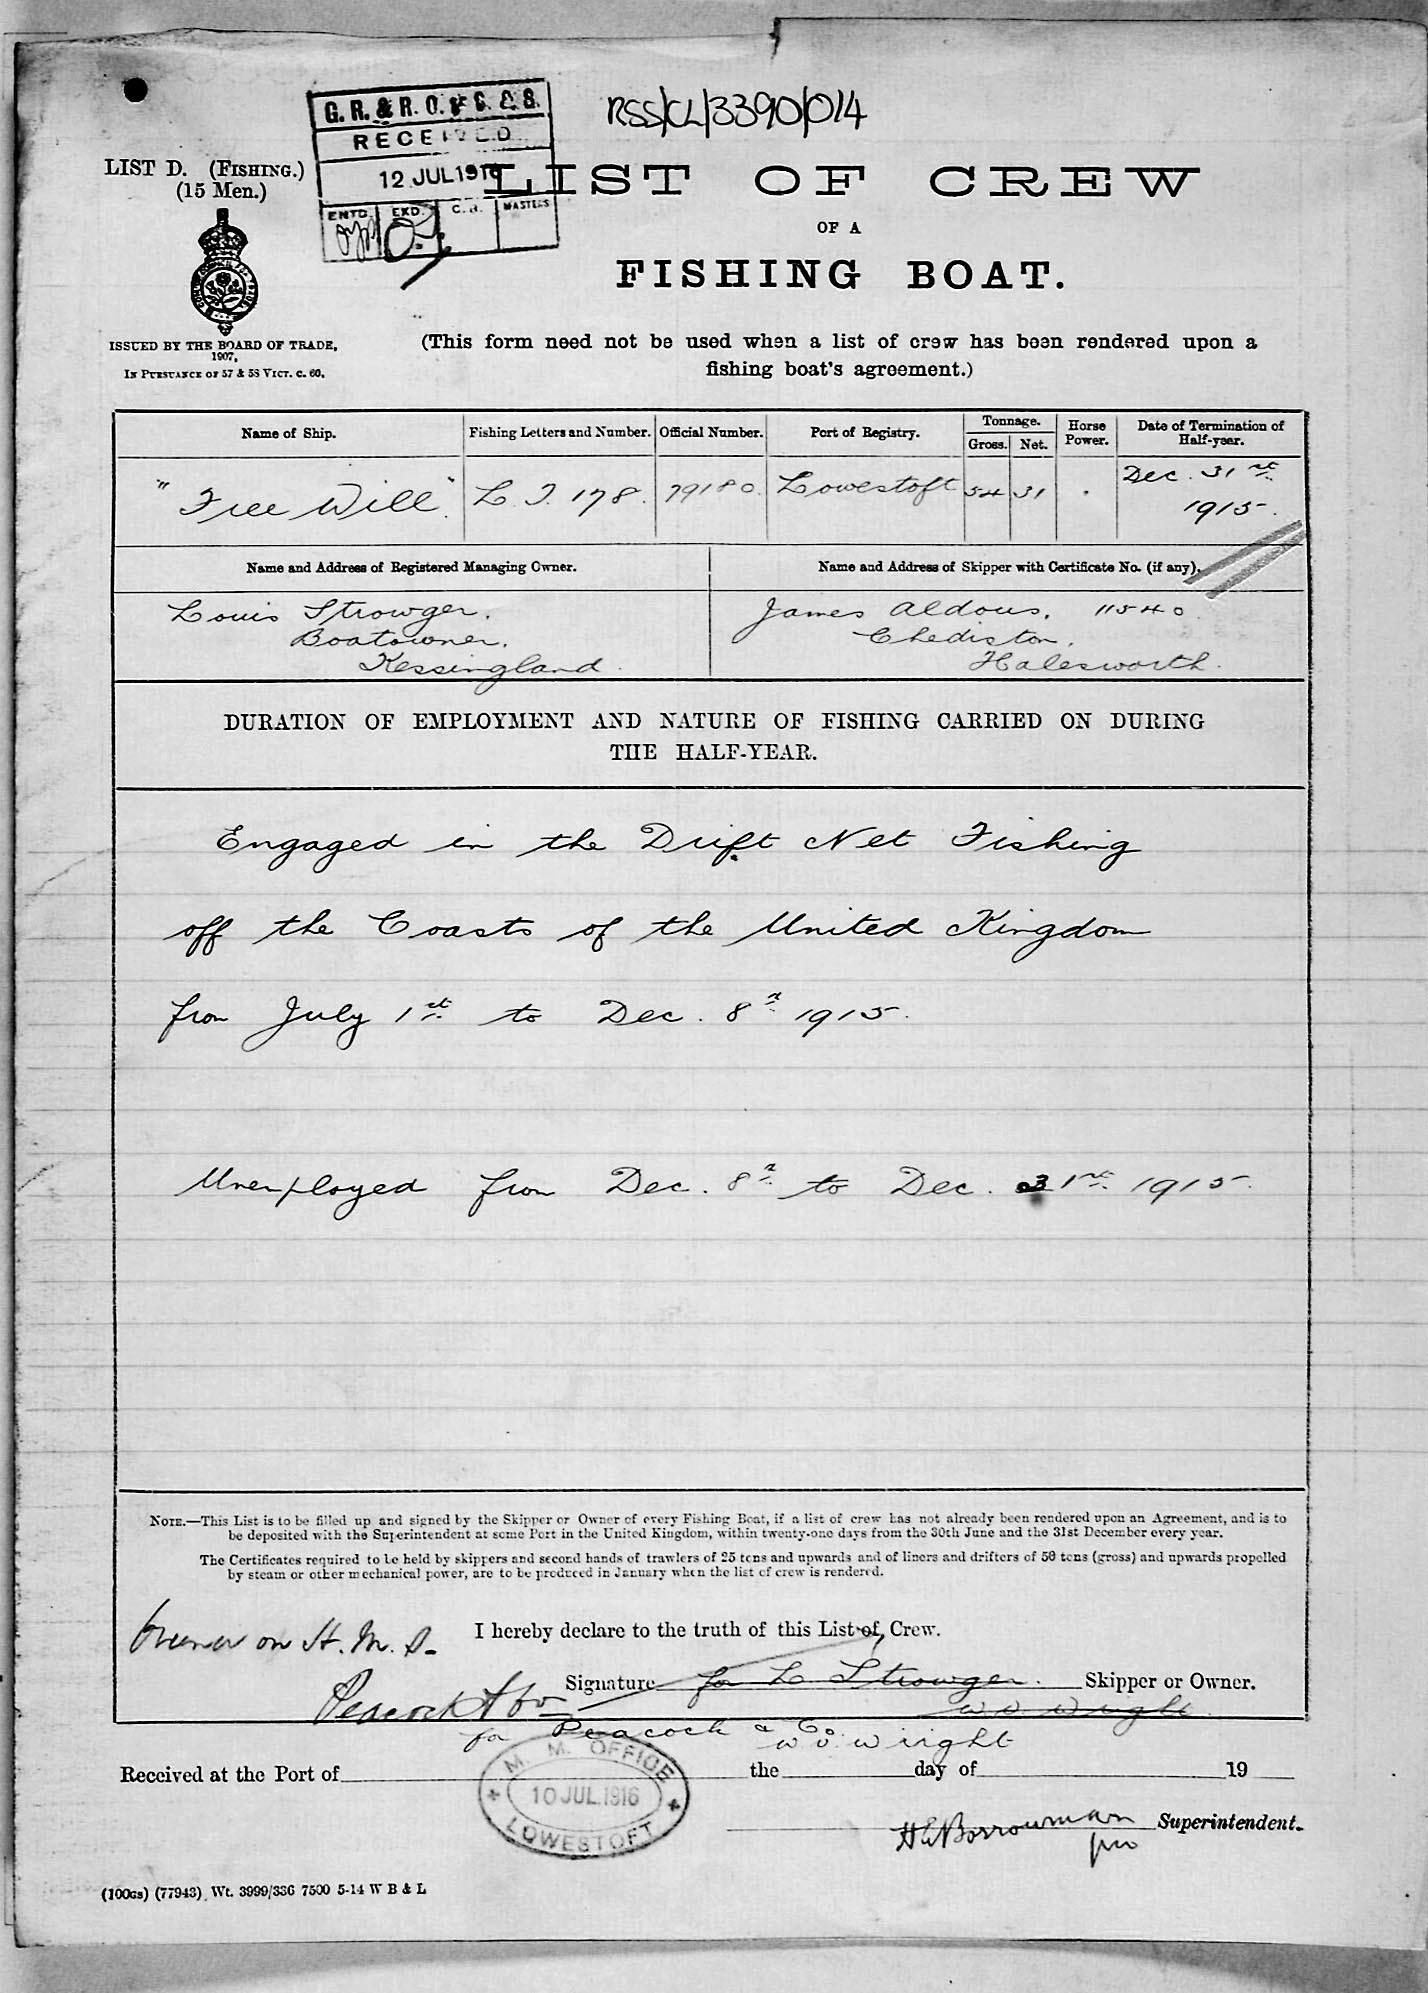 RSS/CL/3390/014
G.R.&R.O. of S.&S.
RECEIVED
12 JUL 1916
ENTD. EXD. C.R. MASTERS
LIST D. (FISHING.)
(15 Men.)
ISSUED BY THE BOARD OF TRADE,
1907,
IN PURSUANCE OF 57 & 58 VICT. C. 60.
LIST OF CREW
OF A
FISHING BOAT.
(This form need not be used when a list of crew has been rendered upon a
fishing boat's agreement.)
Name of Ship. Fishing Letters and Number. Official Number. Port of Registry. Tonnage. Gross. Net. Horse Power. Date of Termination of Half-year.
"Free Will". L.T. 178. 79180. Lowestoft 54 31 Dec. 31st 1915.
Name and Address of Registered Managing Owner. Name and Address of Skipper with Certificate No. (if any).
Louis Strowger. James Aldous. 11540
Boatowner. Chediston,
Kessingland. Halesworth.
DURATION OF EMPLOYMENT AND NATURE OF FISHING CARRIED ON DURING
THE HALF-YEAR.
Engaged in the Drift Net Fishing
off the Coasts of the United Kingdom
from July 1st to Dec. 8th 1915.
Unemployed from Dec. 8th to Dec. 31st 1915.
NOTE.—This List is to be filled up and signed by the Skipper or Owner of every Fishing Boat, if a list of crew has not already been rendered upon an Agreement, and is to
be deposited with the Superintendent at some Port in the United Kingdom, within twenty-one days from the 30th June and the 31st December every year.
The Certificates required to be held by skippers and second hands of trawlers of 25 tons and upwards and of liners and drifters of 50 tons (gross) and upwards propelled
by steam or other mechanical power, are to be produced in January when the list of crew is rendered.
I hereby declare to the truth of this List of Crew.
Owner on H.M.S.
Signature for L Strowger. Skipper or Owner.
Peacock & Co W. O. Wright
for Peacock & Co.
W O Wright
Received at the Port of the day of 19
M. M. OFFICE
10 JUL. 1916
LOWESTOFT
H E Borrowman Superintendent.
(100GS) (77943) Wt. 3999/336 7500 5-14 W B & L